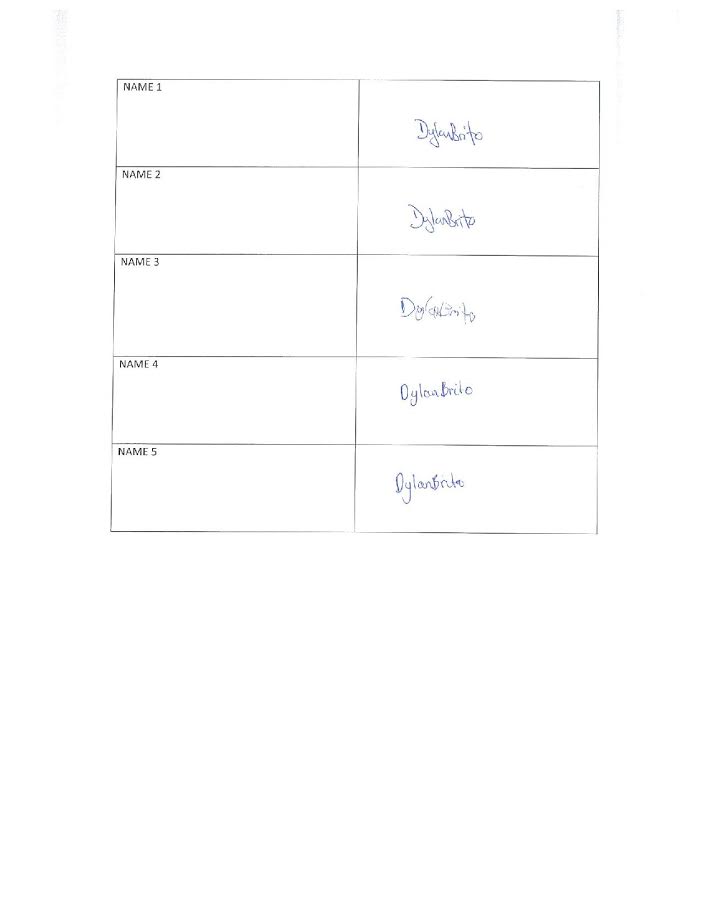 NAME 1
DylanBrito
NAME 2
DylanBrito
NAME 3
DylanBrito
NAME 4
DylanBrito
NAME 5
DylanBrito